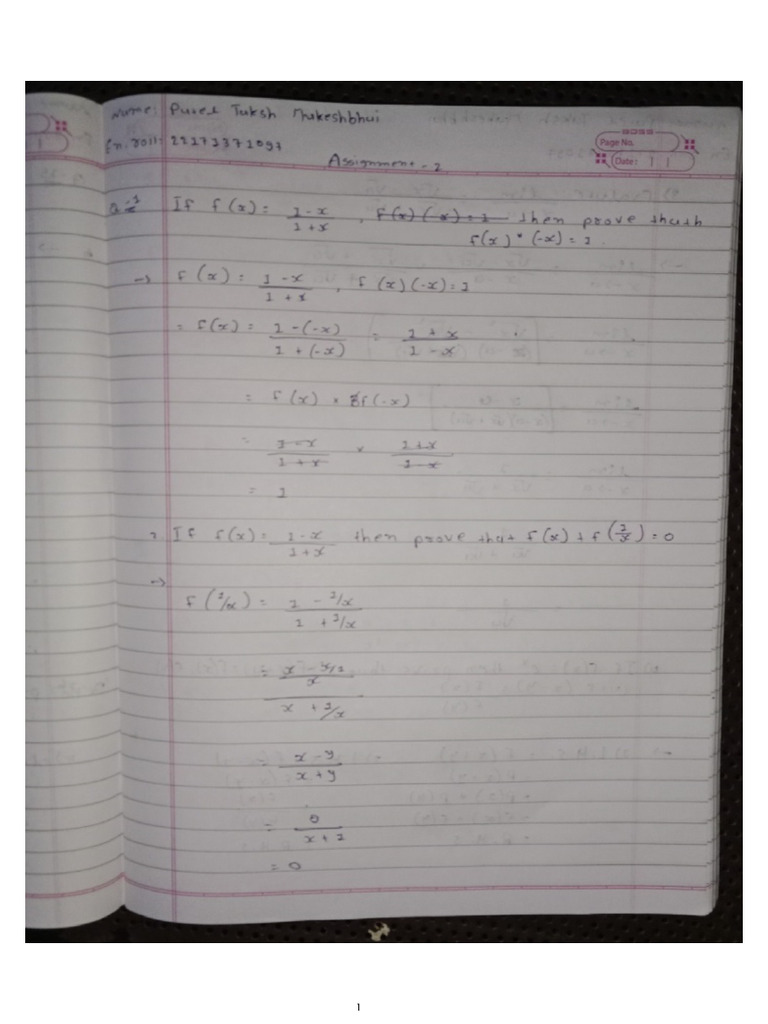 Name: Patel Taksh Mukeshbhai
En. roll: 22173371097
Page No.
Date: | |
Assignment - 2
Q-1 If f(x) = 1-x/1+x , f(x) (-x) = 1 then prove thath
f(x) * (-x) = 1.
→ f(x) = 1-x/1+x , f(x)(-x) = 1
= f(x) = 1-(-x)/1+(-x) = 1+x/1-x
= f(x) × f(-x)
= 1-x/1+x × 1+x/1-x
= 1
2. If f(x) = 1-x/1+x then prove that f(x) + f(1/x) = 0
→
f(1/x) = 1 - 1/x / 1 + 1/x
x + 1/x
= x-y/x+y
= 0/x+1
= 0
1